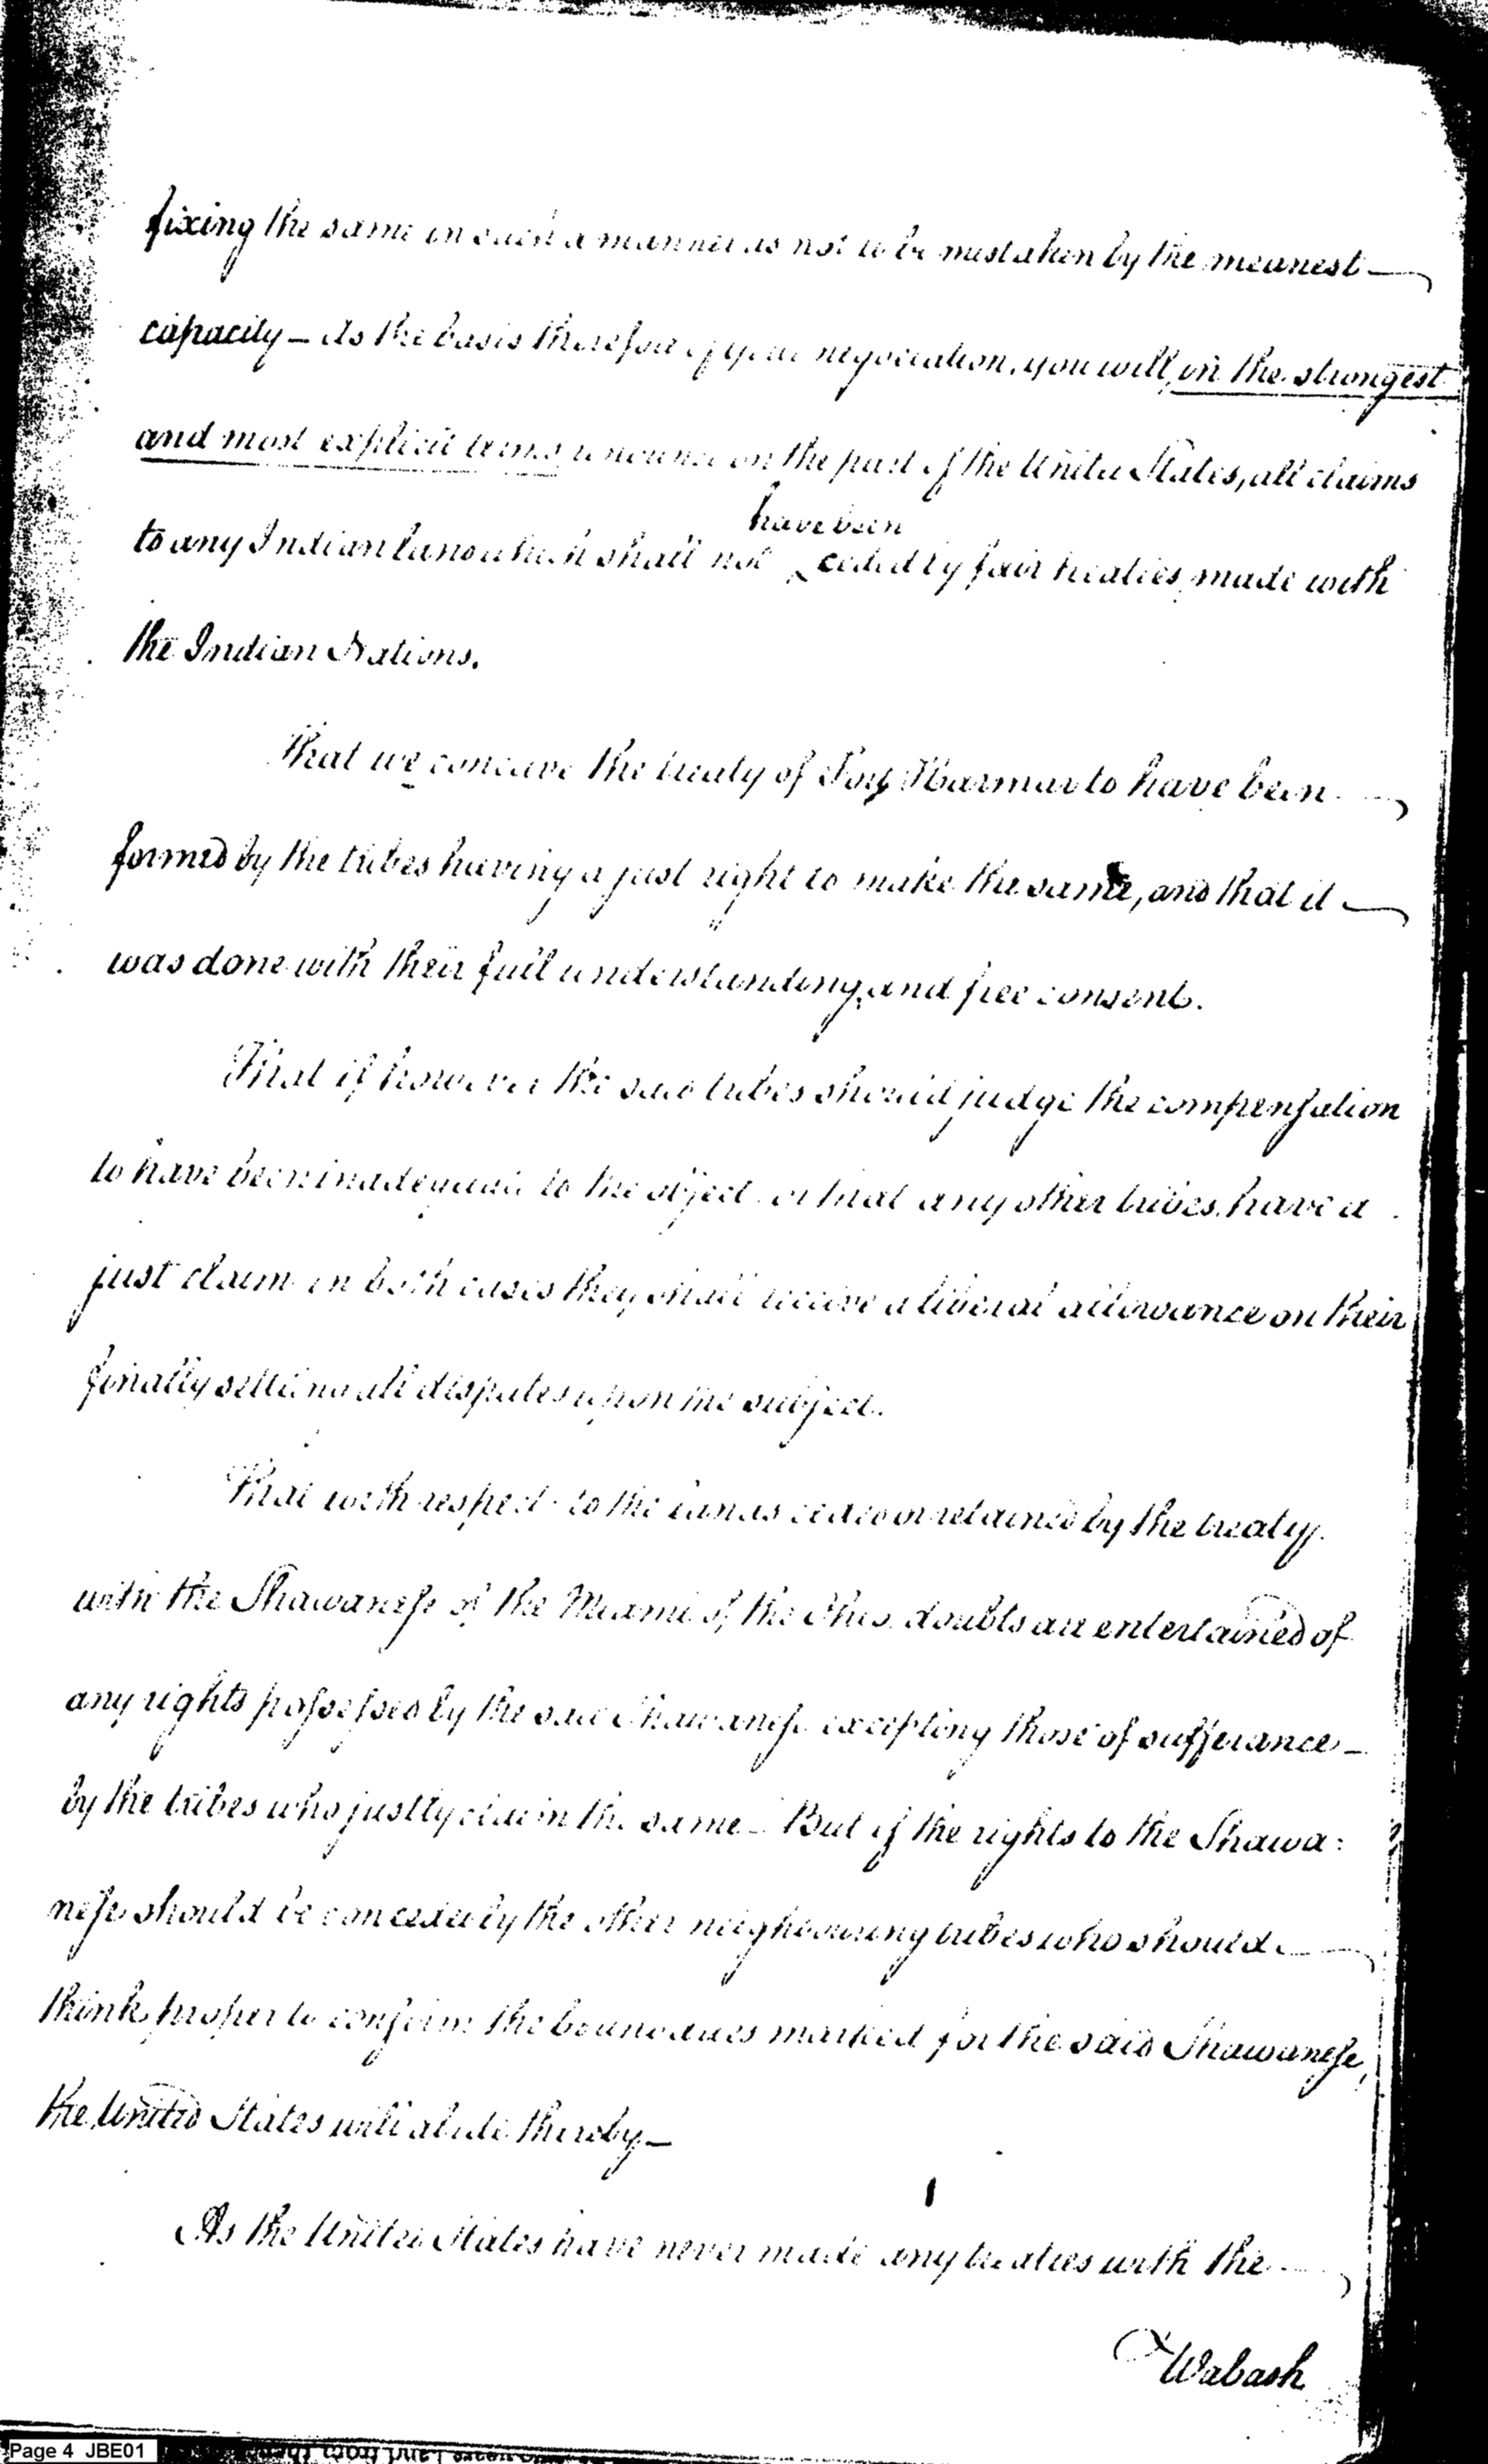 fixing the same in such a manner as not to be mistaken by the meanest
capacity — As the basis therefore of your negociation, you will, in the strongest
and most explicit terms renounce on the part of the United States, all claims
have been
to any Indian land which shall not ‸ ceded by fair treaties, made with
the Indian Nations.
That we conceive the treaty of Fort Harmar to have been
formed by the tribes having a just right to make the same, and that it
was done with their full understanding, and free consent.
That if however the said tribes should judge the compensation
to have been inadequate to the object or that any other tribes, have a
just claim in both cases they shall receive a liberal allowance on their
finally settling all disputes upon the subject.
That with respect to the lands ceded or retained by the treaty
with the Shawanese at the Miami of the Ohio doubts are entertained of
any rights possessed by the said Shawanese excepting those of sufferance —
by the tribes who justly claim the same — But if the rights to the Shawa:
nese should be conceded by the other neighbouring tribes who should
think proper to confirm the boundaries marked for the said Shawanese,
the United States will abide thereby —
As the United States have never made any treaties with the
Wabash
Page 4 JBE01